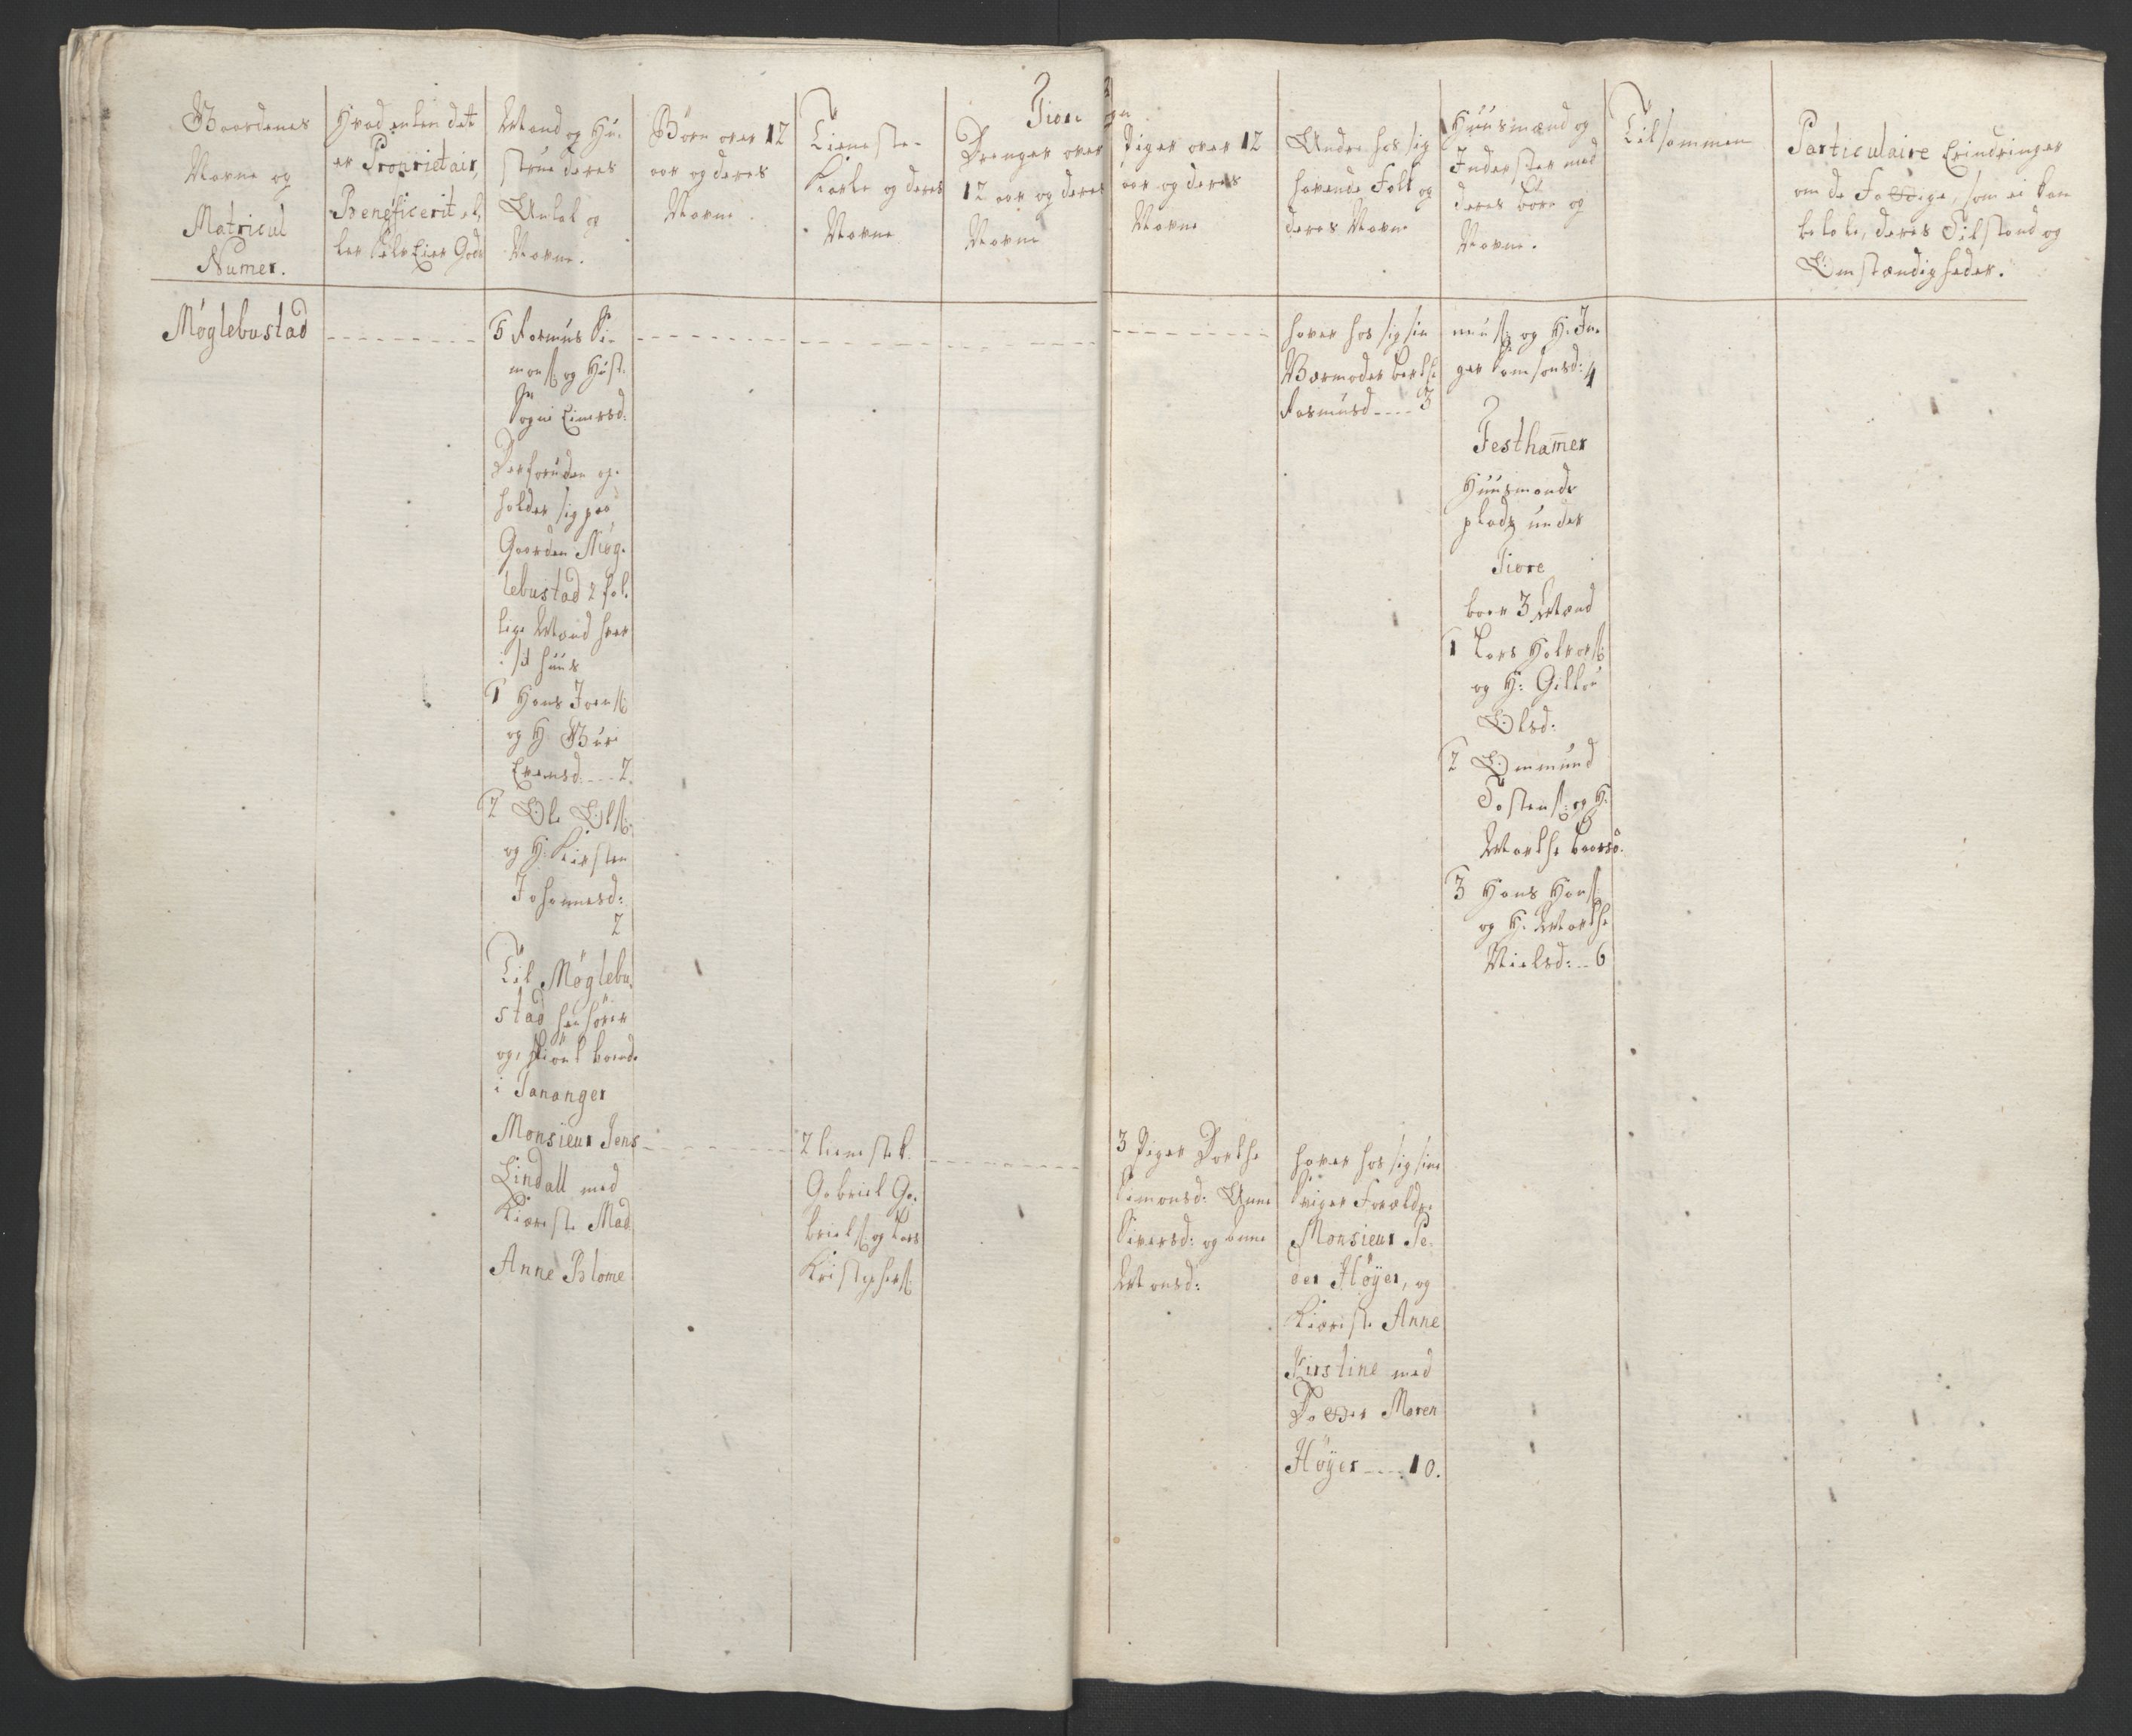 Tiore
Gaardenes
Navne og
Matricul
Numer.
Hvad enten det
er Proprietair,
Beneficerit el.
ler Selv Eier Gods
Mand og Hu.
strue deres
Antal og
Navne.
Børn over 12
aar og deres
Navne
Tieneste-
Karle og deres
Navne
Drenger over
12 aar og deres
Navne
Piger over 12
aar og deres
Navne
Andre hos sig
havende Folk og
deres Navne
Huusmænd og
Inderster med
deres børn og
Navne.
Tilsammen
Particulaire Erindringer
om de Fattige, som ei kan
betale, deres Tilstand og
Omstændigheder.
Møglebustad
5 Rasmus Si-
mons: og Hust.
Eimersd:
Desforuden op.
holder sig paa
Gaarden Møg.
lebustad 2 sol.
lige Mænd hver
i sit huus
1 Hans Joens:
og H: Guri
Evensd: ---- 2.
2 Ole Ols:
og H: Kirsten
Johannesd:
2
Til Møglebu.
stad henhører
og, boende
i Tananger
Monsieur Jens
Lindall med
Kiæreste Mad
Anne Blome
2 tieneste k.
Gabriel Ga.
briels: og Lars
Kristophers:
3 Piger Dorthe
Simonsd: Anne
Siversd: og Anne
Monsd:
haver hos sig sin
Værmoder Berthe
Rasmusd ---- 3
haver hos sig sine
Sviger Forældre
Monsieur Pe.
der Høyer, og
Kiæreste Anne
Kirstine med
Datter Maren
Høyer ---- 10.
og H: In.
ger Samsonsd: 4
Jestham̄er
Huusmands
plads under
Tiore
boer 3 Mænd
1 Lars Halvors:
og H: Gitlou
Olsd:
2 Ommund
Tostens: og H:
Marthe Baarsd.
3 Hans Hans:
og H: Marthe
Nielsd: -- 6